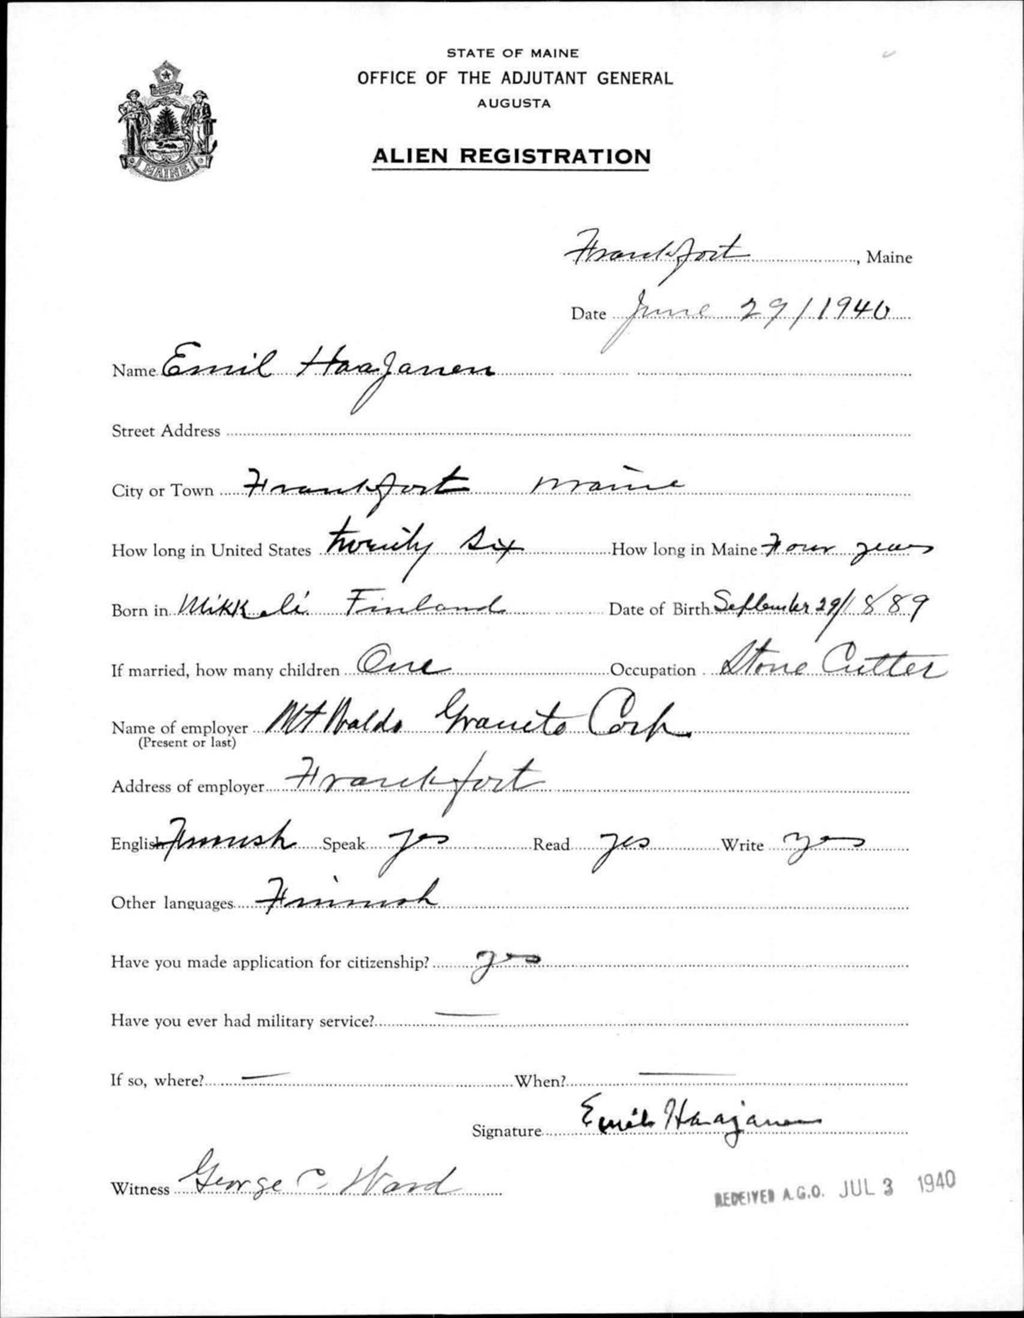 STATE OF MAINE
OFFICE OF THE ADJUTANT GENERAL
AUGUSTA
ALIEN REGISTRATION
MAINE
Frankfort, Maine
Date June 29/1940
Name Emil Haajanen
Street Address
City or Town Frankfort Maine
How long in United States twenty six How long in Maine Four years
Born in Mikkeli Finland Date of Birth September 29/1889
If married, how many children One Occupation Stone Cutter
Name of employer Mt Waldo Granite Corp
(Present or last)
Address of employer Frankfort
English Finnish Speak yes Read yes Write yes
Other languages Finnish
Have you made application for citizenship? yes
Have you ever had military service? —
If so, where? — When? —
Signature Emil Haajanen
Witness George C. Ward
RECEIVED A.G.O. JUL 3 1940